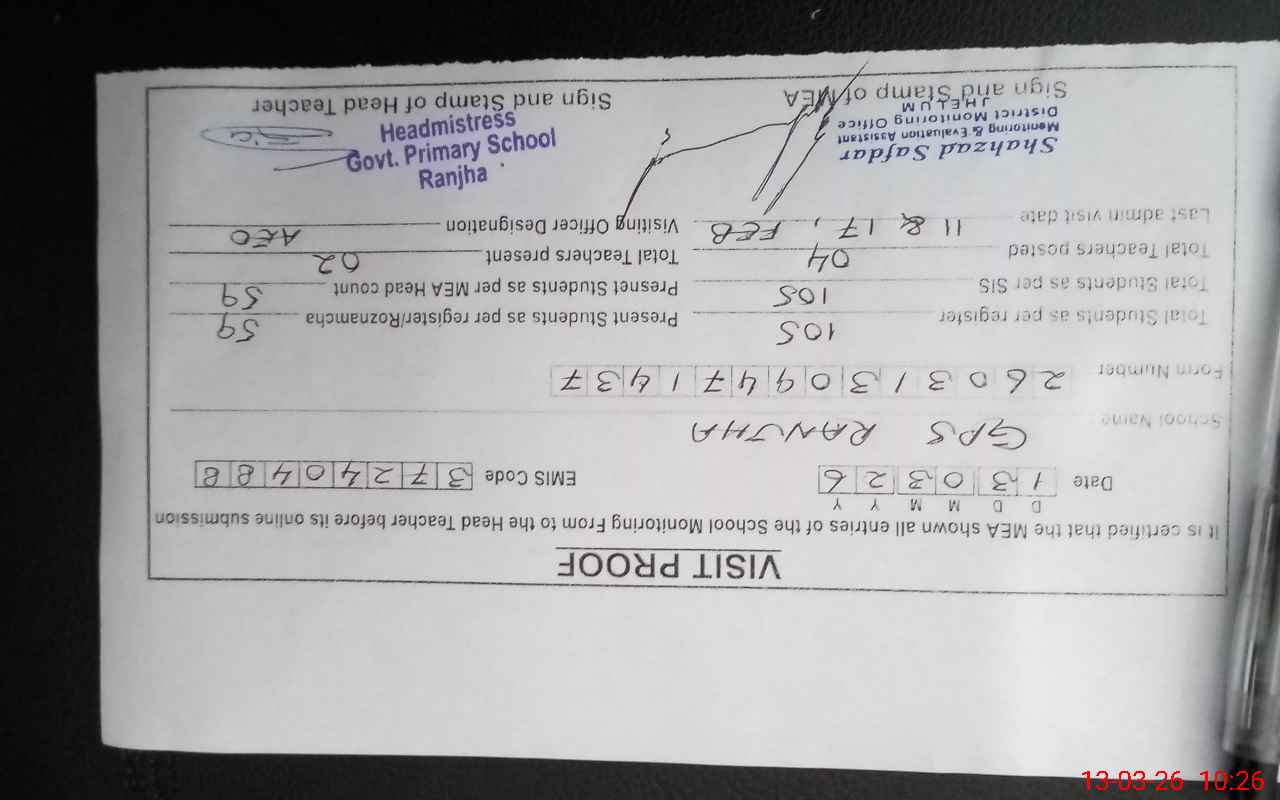 VISIT PROOF
It is certified that the MEA shown all entries of the School Monitoring From to the Head Teacher before its online submission
D D M M Y Y
Date 1 3 0 3 2 6 EMIS Code 3 7 2 4 0 4 8 8
School Name GPS RANJHA
Form Number 2 6 0 3 1 3 0 9 4 7 1 4 3 7
Total Students as per register 105 Present Students as per register/Roznamcha 59
Total Students as per SIS 105 Presnet Students as per MEA Head count 59
Total Teachers posted 04 Total Teachers present 02
Last admin visit date 11 & 17, FEB Visiting Officer Designation AEO
Shahzad Safdar
Monitoring & Evaluation Assistant
District Monitoring Office
JHELUM
Headmistress
Govt. Primary School
Ranjha
Sign and Stamp of MEA Sign and Stamp of Head Teacher
13-03-26 10:26